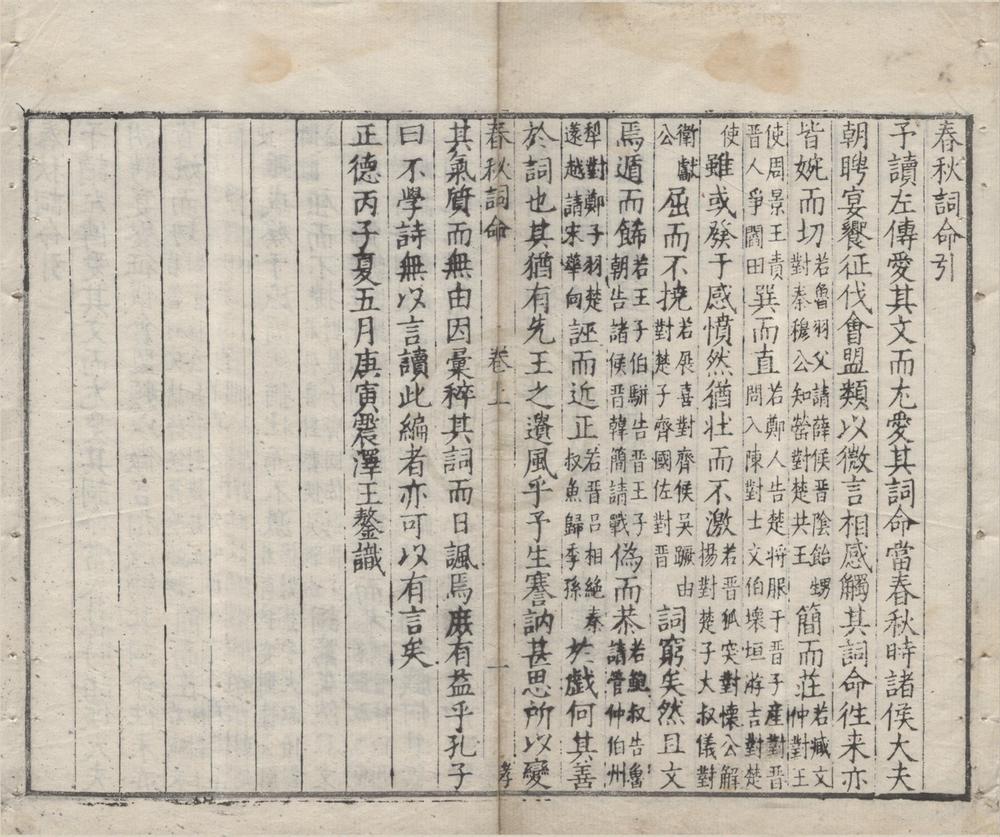 春秋詞命引
予讀左傳愛其文而尤愛其詞命當春秋時諸侯大夫
朝聘宴饗征伐會盟類以微言相感觸其詞命往来亦
皆婉而切若魯羽父請薛侯晋陰飴甥對秦穆公知罃對楚共王簡而莊若臧文仲對王
使周景王責晋人爭閻田巽而直若鄭人告楚将服于晋子產對晋問入陳對士文伯壞垣游吉對楚
使雖或發于感憤然猶壯而不激若晋狐突對懷公解揚對楚子大叔儀對
衛獻公屈而不撓若展喜對齊侯吴蹶由對楚子齊國佐對晋詞窮矣然且文
焉遁而餙若王子伯駢告晋王子朝告諸侯晋韓簡請戰偽而恭若鮑叔告魯請管仲伯州
犂對鄭子羽楚薳越請宋華向誣而近正若晋吕相絶秦叔魚歸季孫於戲何其善
於詞也其猶有先王之遺風乎予生謇訥甚思所以變
春秋詞命 卷上 一 孝
其氣質而無由因彙稡其詞而日諷焉庶有益乎孔子
曰不學詩無以言讀此編者亦可以有言矣
正德丙子夏五月庚寅震澤王鏊識